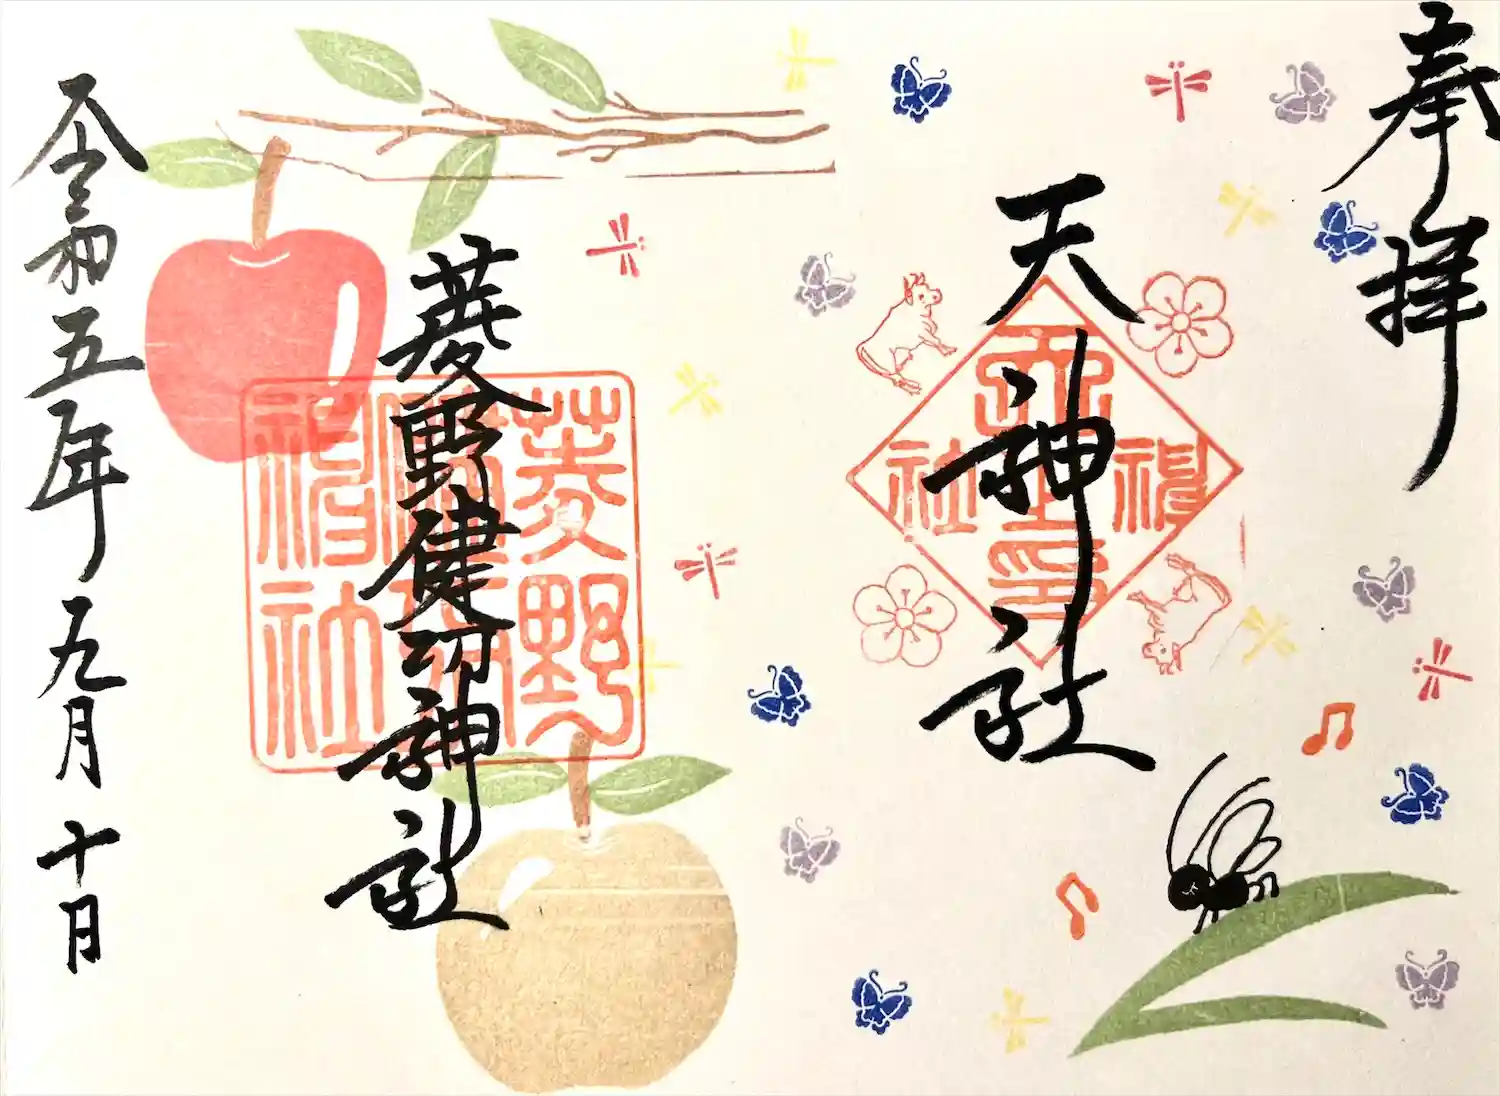 奉拝
天神社
菱野健功神社
菱野
健功
神社
令和五年九月十日